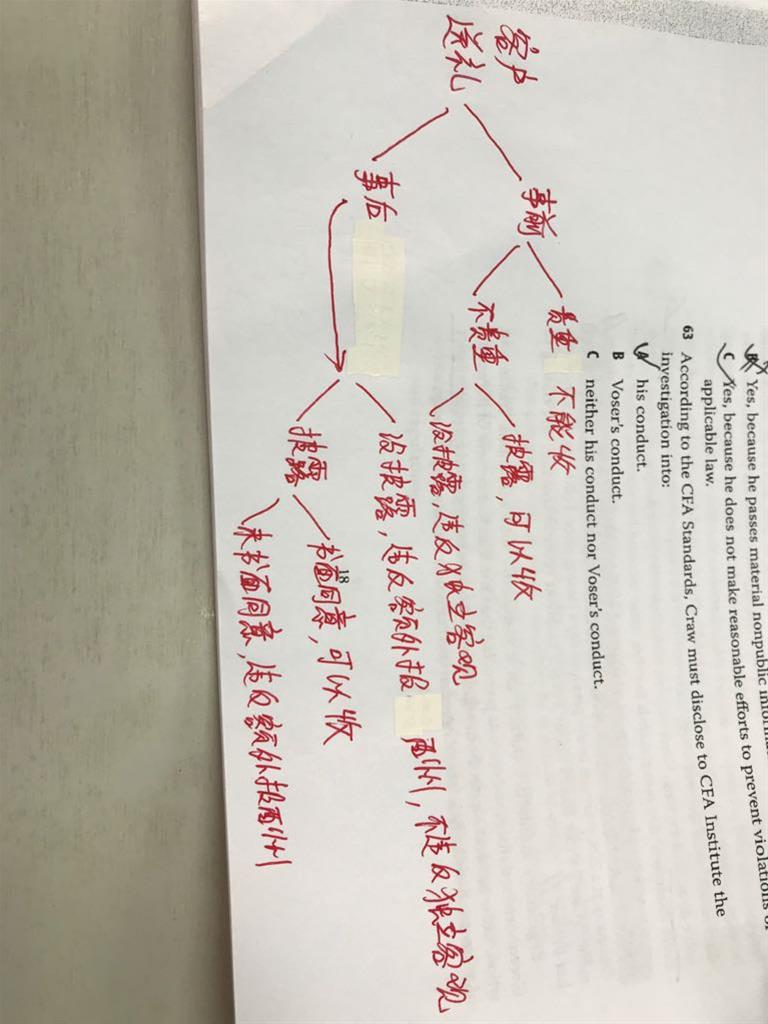 B Yes, because he passes material nonpublic
C Yes, because he does not make reasonable efforts to prevent violations of
applicable law.
63 According to the CFA Standards, Craw must disclose to CFA Institute the
investigation into:
A his conduct.
B Voser's conduct.
C neither his conduct nor Voser's conduct.
客户
送礼
事前
贵重 不能收
不贵重
披露,可以收
没披露,违反独立客观
事后
没披露,违反额外报酬,不违反独立客观
披露
书面同意,可以收
未书面同意,违反额外报酬
18